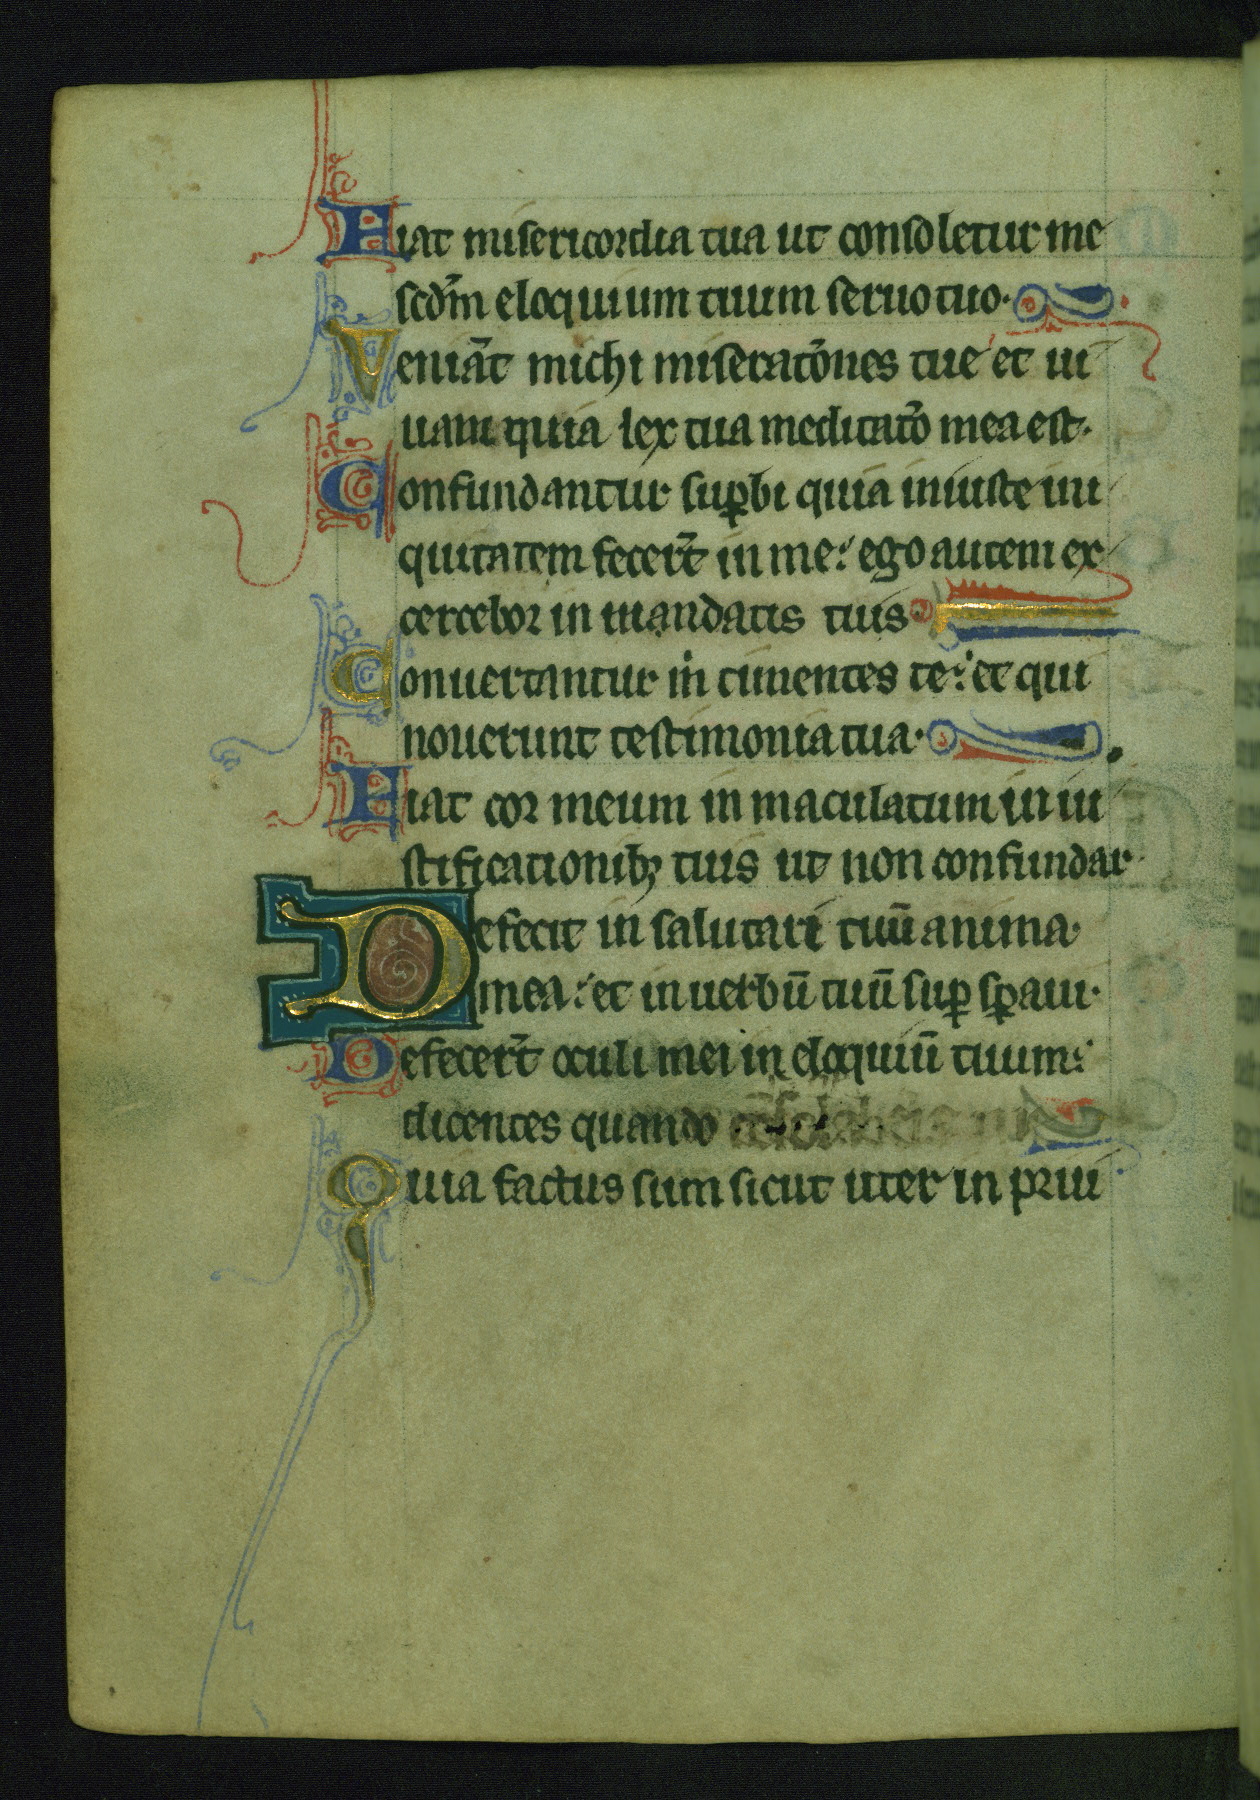 Fiat misericordia tua ut consoletur me
scd̄m eloquium tuum seruo tuo.
Veniāt michi miserat̄ones tue et ui
uam quia lex tua meditat̄o mea est.
Confundantur suꝑbi quia iniuste ini
quitatem fecer̄t in me: ego autem ex
cercebor in mandatis tuis
Conuertantur in timentes te: et qui
nouerunt testimonia tua.
Fiat cor meum in maculatum in iu
stificationibꝫ tuis ut non confundar
Defecit in salutari tuū anima
mea: et in uerbū tuū suꝑ sꝑaui.
Defecer̄t oculi mei in eloquiū tuum:
dicentes quando
Quia factus sum sicut uter in prui